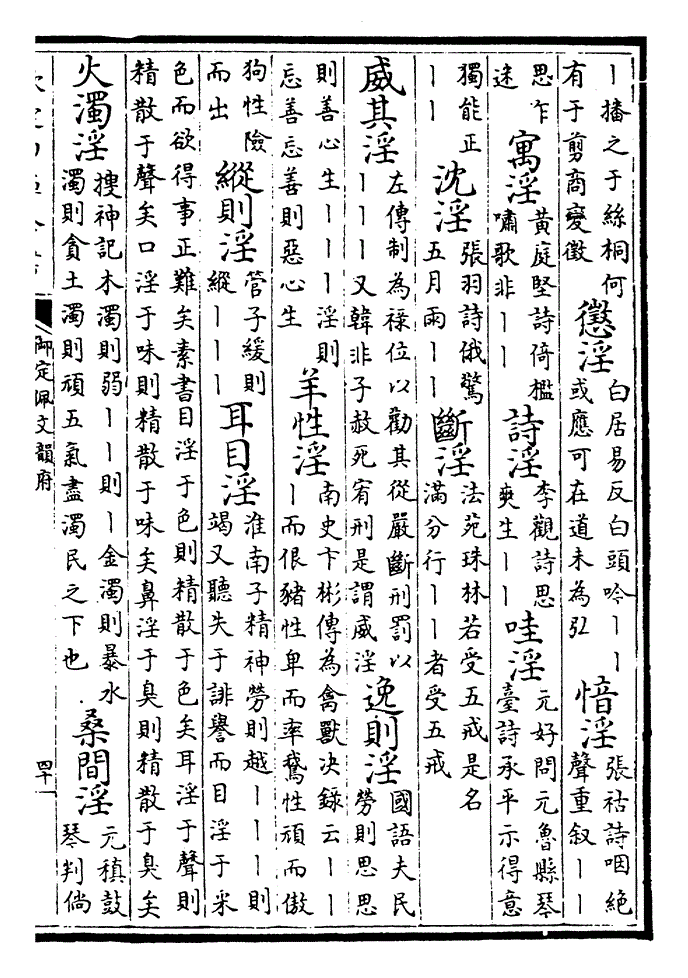 丨播之于絲桐何
有于剪商變徵
懲淫
白居易反白頭吟丨丨
或應可在道未為弘
愔淫
張祜詩咽絶
聲重叙丨丨
思乍
迷
寓淫
黄庭堅詩倚檻
嘯歌非丨丨
詩淫
李觀詩思
爽生丨丨
哇淫
元好問元魯縣琴
臺詩承平示得意
獨能正
丨丨
沈淫
張羽詩俄驚
五月雨丨丨
斷淫
法苑珠林若受五戒是名
滿分行丨丨者受五戒
威其淫
左傳制為祿位以勸其從嚴斷刑罰以
丨丨丨又韓非子赦死宥刑是謂威淫
逸則淫
國語夫民
勞則思思
則善心生丨丨丨淫則
忘善忘善則惡心生
羊性淫
南史卞彬傳為禽獸决錄云丨丨
丨而佷豬性卑而率鵞性頑而傲
狗性險
而出
縱則淫
管子緩則
縱丨丨丨
耳目淫
淮南子精神勞則越丨丨丨則
竭又聽失于誹譽而目淫于采
色而欲得事正難矣素書目淫于色則精散于色矣耳淫于聲則
精散于聲矣口淫于味則精散于味矣鼻淫于臭則精散于臭矣
火濁淫
搜神記木濁則弱丨丨則丨金濁則暴水
濁則貪土濁則頑五氣盡濁民之下也
桑間淫
元稹鼓
琴判倘
御定佩文韻府
四十一